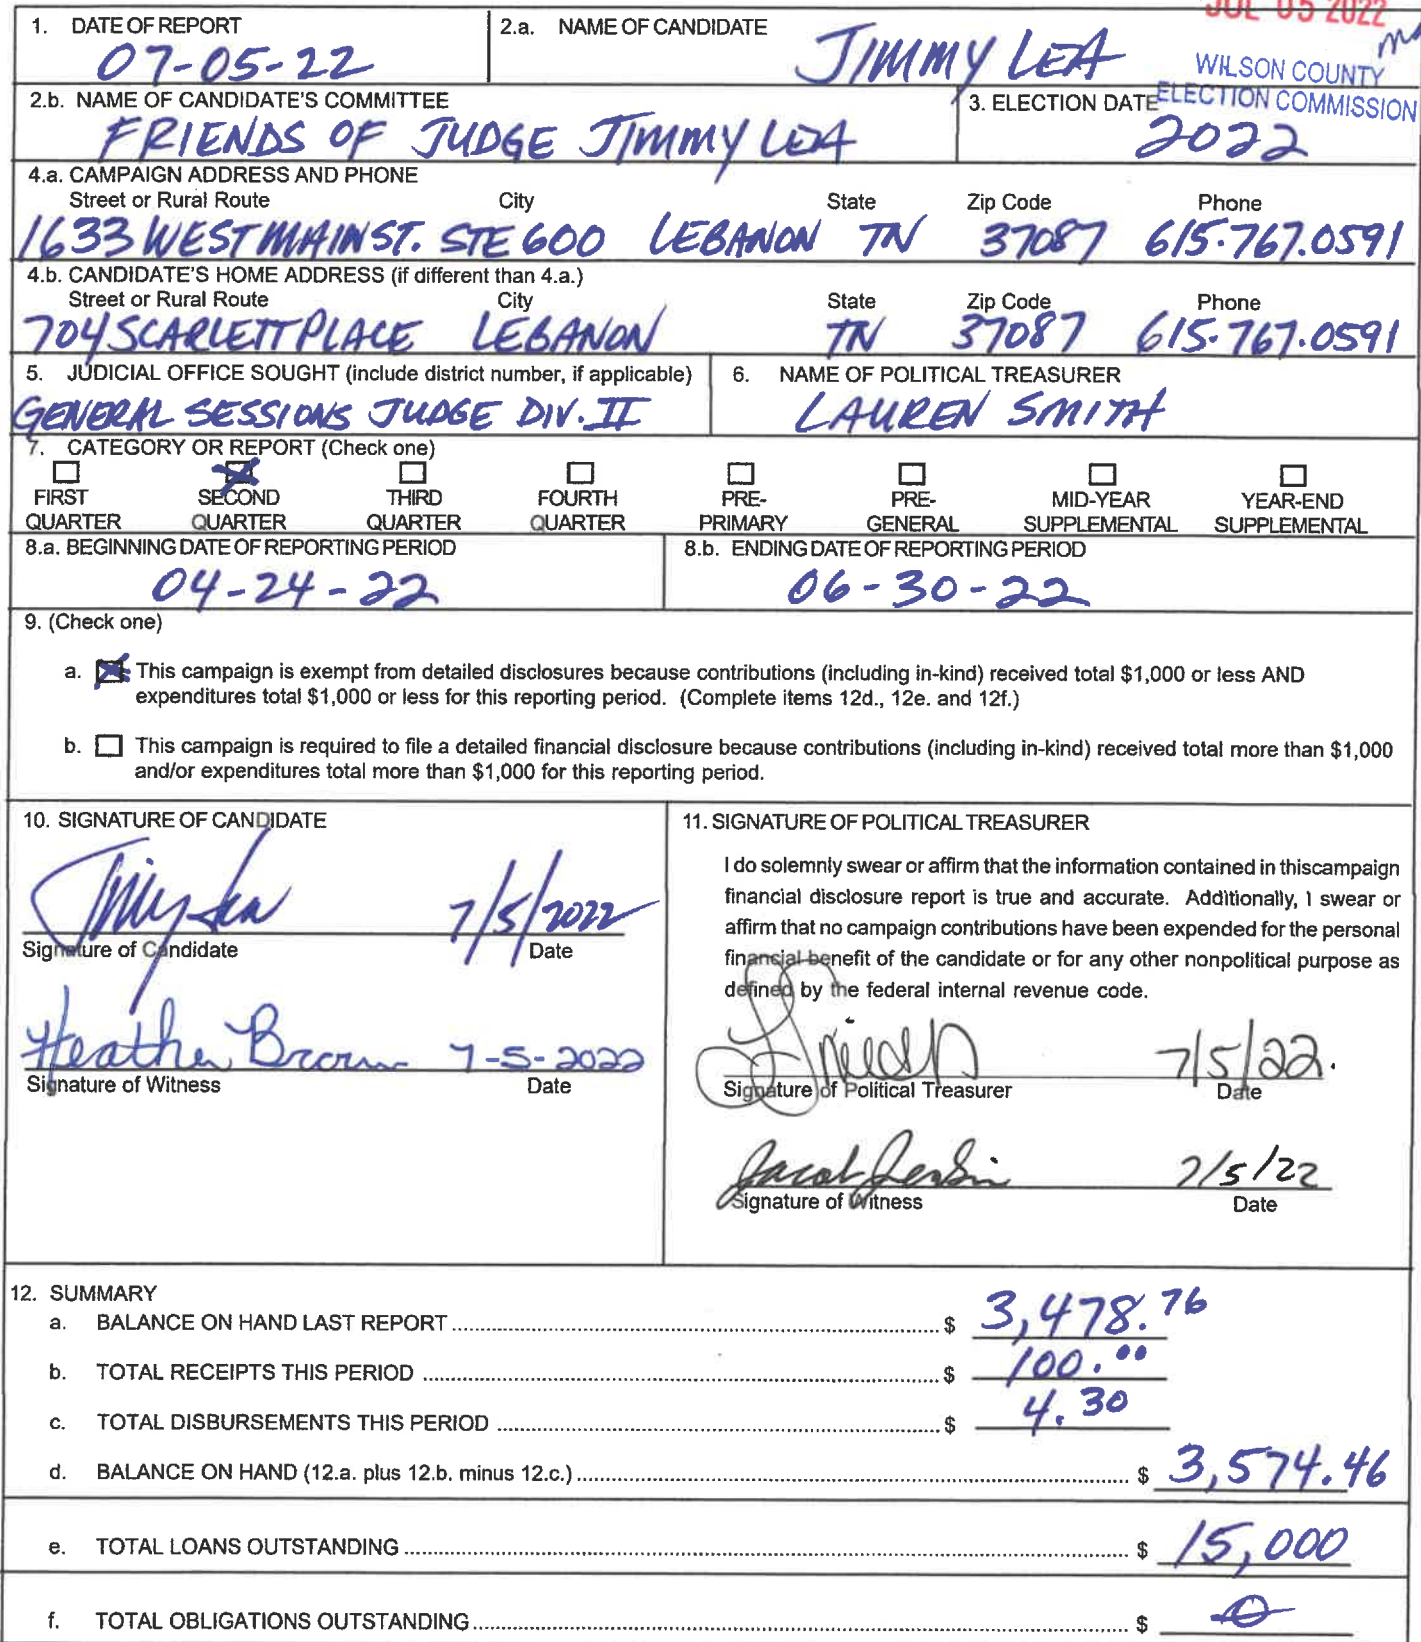 JUL 05 2022
1. DATE OF REPORT
07-05-22
2.a. NAME OF CANDIDATE
JIMMY LEA
WILSON COUNTY
ELECTION COMMISSION
2.b. NAME OF CANDIDATE'S COMMITTEE
FRIENDS OF JUDGE JIMMY LEA
3. ELECTION DATE
2022
4.a. CAMPAIGN ADDRESS AND PHONE
Street or Rural Route City State Zip Code Phone
1633 WEST MAIN ST. STE 600 LEBANON TN 37087 615.767.0591
4.b. CANDIDATE'S HOME ADDRESS (if different than 4.a.)
Street or Rural Route City State Zip Code Phone
704 SCARLETT PLACE LEBANON TN 37087 615.767.0591
5. JUDICIAL OFFICE SOUGHT (include district number, if applicable)
GENERAL SESSIONS JUDGE DIV. II
6. NAME OF POLITICAL TREASURER
LAUREN SMITH
7. CATEGORY OR REPORT (Check one)
FIRST QUARTER
SECOND QUARTER
THIRD QUARTER
FOURTH QUARTER
PRE-PRIMARY
PRE-GENERAL
MID-YEAR SUPPLEMENTAL
YEAR-END SUPPLEMENTAL
8.a. BEGINNING DATE OF REPORTING PERIOD
04-24-22
8.b. ENDING DATE OF REPORTING PERIOD
06-30-22
9. (Check one)
a. This campaign is exempt from detailed disclosures because contributions (including in-kind) received total $1,000 or less AND
expenditures total $1,000 or less for this reporting period. (Complete items 12d., 12e. and 12f.)
b. This campaign is required to file a detailed financial disclosure because contributions (including in-kind) received total more than $1,000
and/or expenditures total more than $1,000 for this reporting period.
10. SIGNATURE OF CANDIDATE
Jimmy Lea 7/5/2022
Signature of Candidate Date
Heather Brown 7-5-2022
Signature of Witness Date
11. SIGNATURE OF POLITICAL TREASURER
I do solemnly swear or affirm that the information contained in thiscampaign
financial disclosure report is true and accurate. Additionally, I swear or
affirm that no campaign contributions have been expended for the personal
financial benefit of the candidate or for any other nonpolitical purpose as
defined by the federal internal revenue code.
7/5/22.
Signature of Political Treasurer Date
Jacob 7/5/22
Signature of Witness Date
12. SUMMARY
a. BALANCE ON HAND LAST REPORT $ 3,478.76
b. TOTAL RECEIPTS THIS PERIOD $ 100.00
c. TOTAL DISBURSEMENTS THIS PERIOD $ 4.30
d. BALANCE ON HAND (12.a. plus 12.b. minus 12.c.) $ 3,574.46
e. TOTAL LOANS OUTSTANDING $ 15,000
f. TOTAL OBLIGATIONS OUTSTANDING $ 0